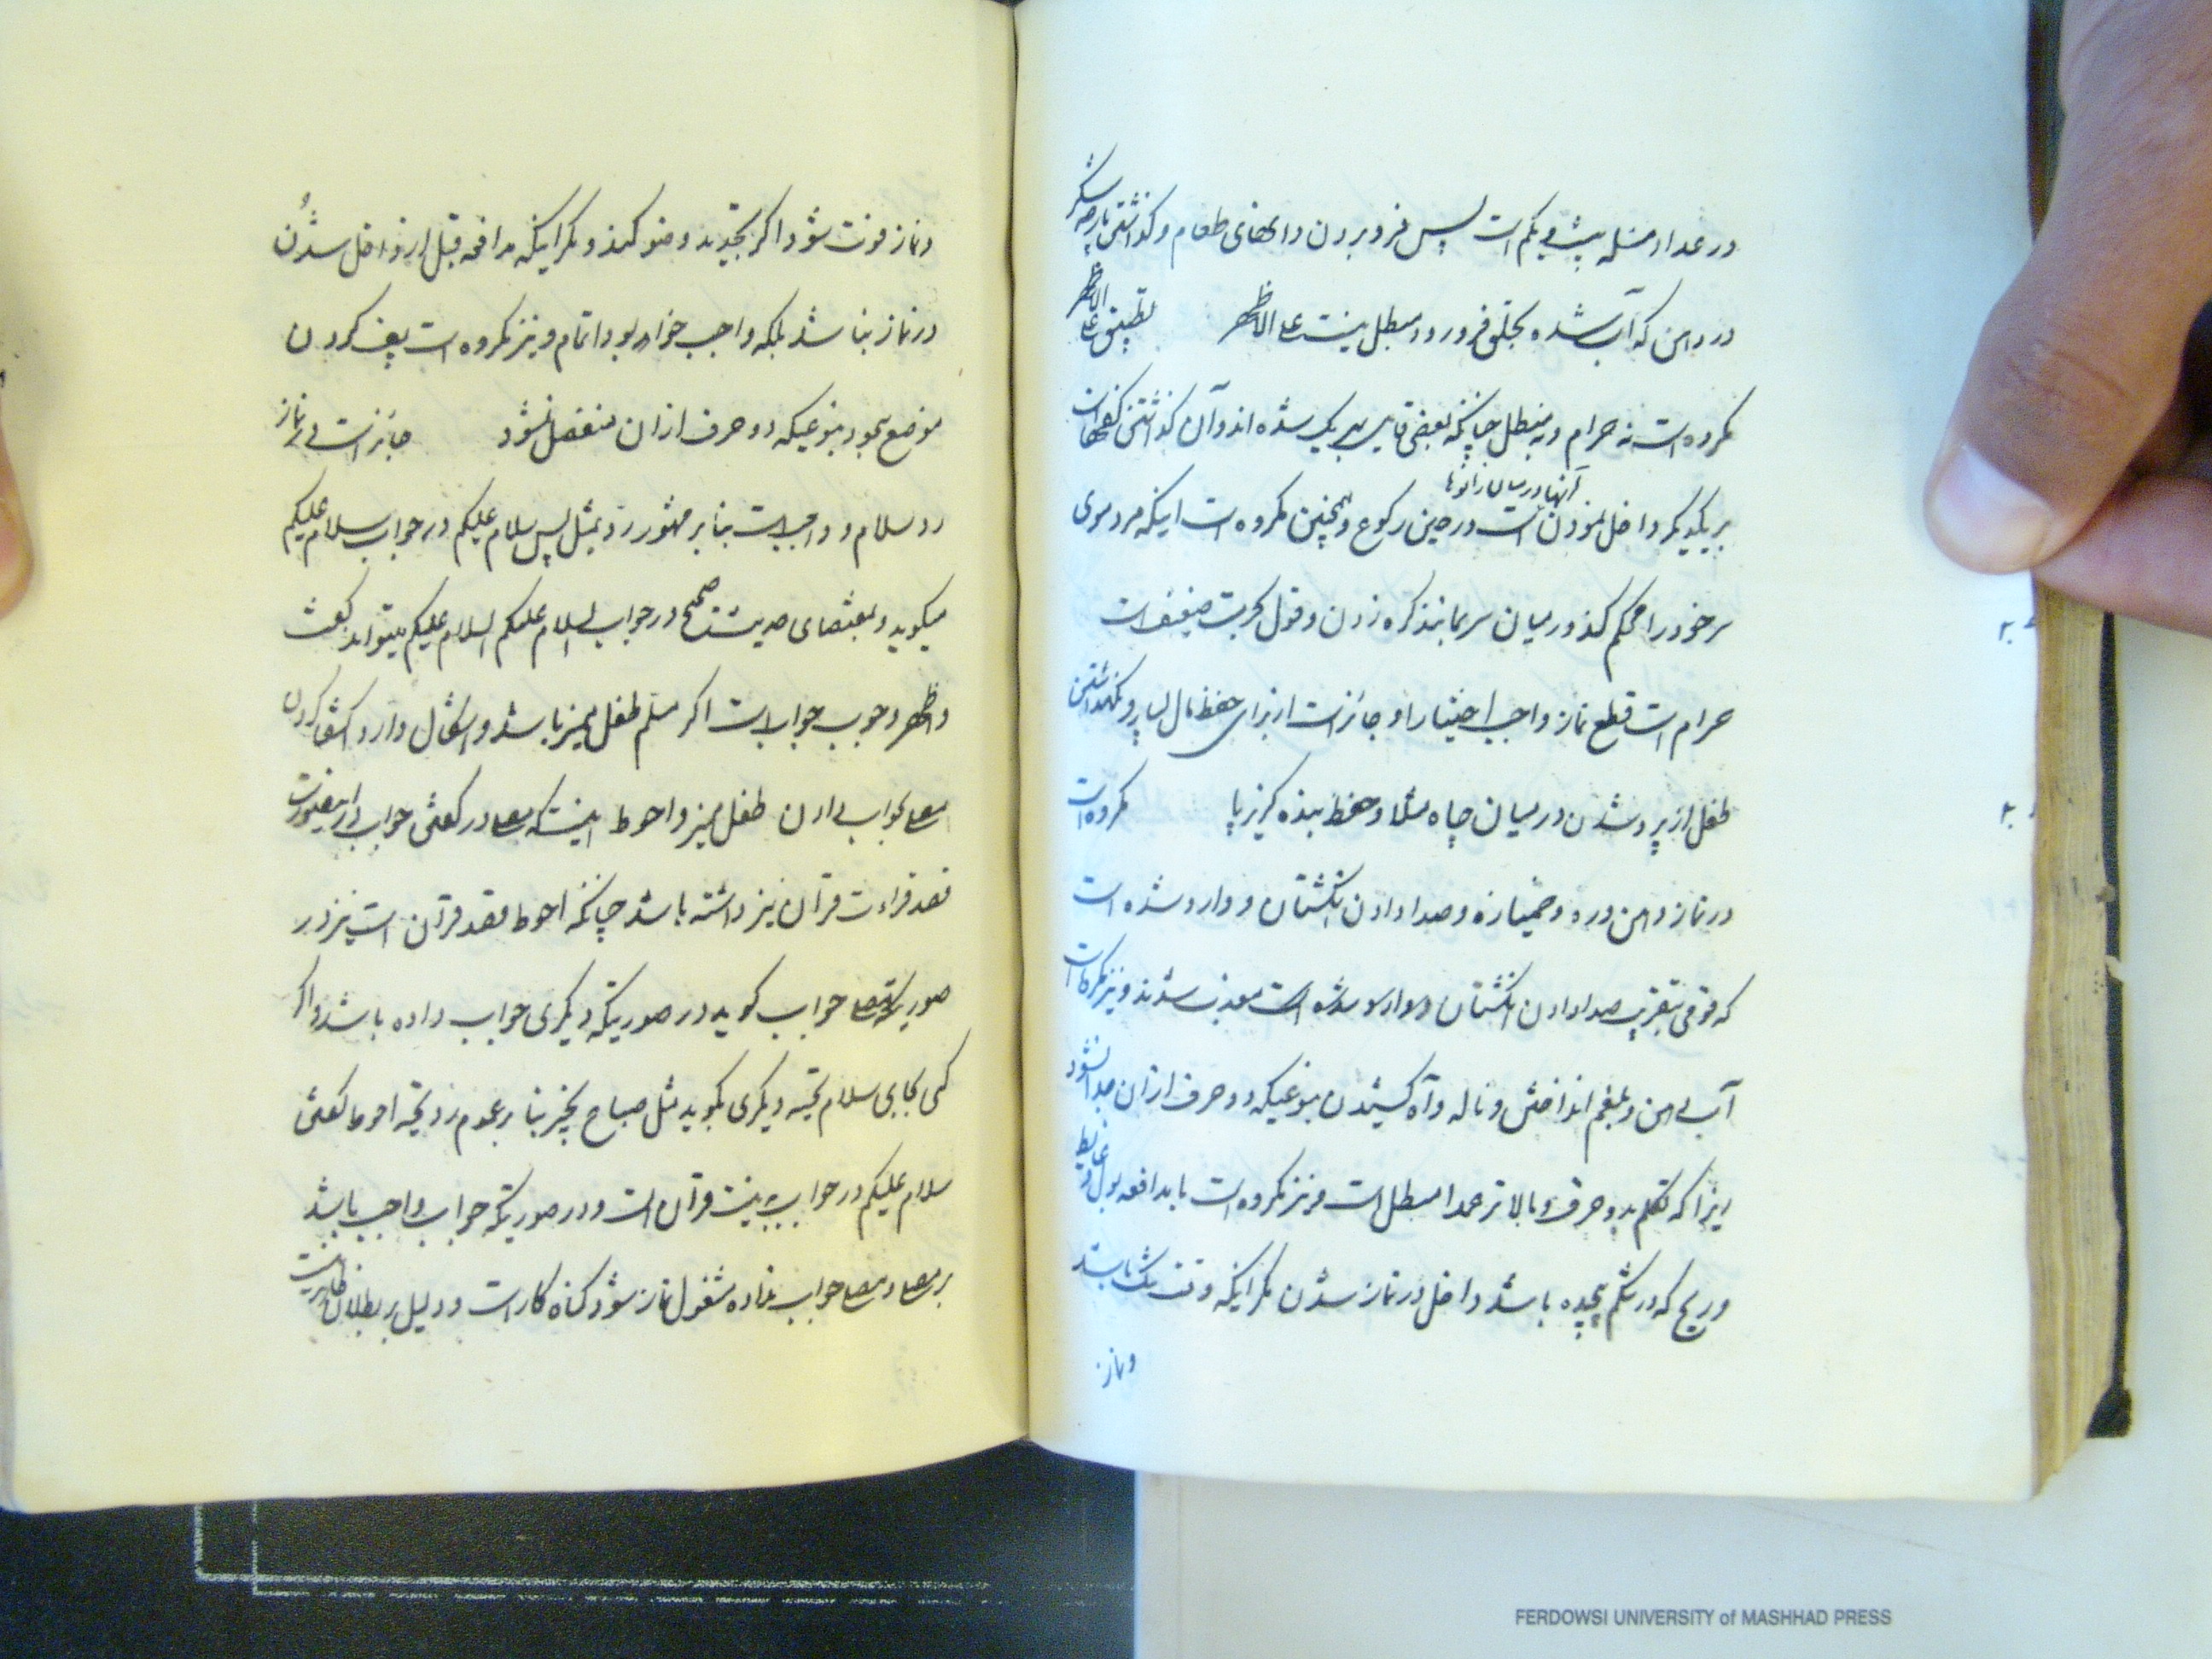 در عداد مسئله بیست و یکم است پس فرو بردن دانهای طعام و گذاشتن پارچه شکر
در دهن که آب شده بحلق فرو رود مبطل نیست علی الاظهر تطبیق علی الاظهر
مکروه است نه حرام و نه مبطل چنانکه بعضی قایل بهر یک شده اند و آن گذاشتن کفهاست
بر یکدیگر و داخل نمودن آنها در میان زانوها است در حین رکوع و همچنین مکروه است اینکه مرد موی
سر خود را محکم کند در میان سر بمانند گره زدن و قول بحرمت ضعیف است
حرام است قطع نماز واجب اختیارا و جائز است از برای حفظ مال بسیار و نگهداشتن
طفل از پرت شدن در میان چاه مثلا و حفظ بنده گریزپا مکروه است
در نماز دهن دره و خمیازه و صدا دادن انگشتان و وارد شده است
که قومی بتقریب صدا دادن انگشتان معذب شدند و نیز مکروه است
آب دهن و بلغم انداختن و ناله و آه کشیدن بنوعیکه دو حرف از آن جدا نشود
زیرا که تکلم بدو حرف و بالاتر عمدا مبطل است و نیز مکروه است با مدافعه بول و غایط
و ریح که در شکم پیچیده باشد داخل در نماز شدن مگر اینکه وقت تنگ باشد
و نماز
و نماز فوت شود اگر تجدید وضو کند و مگر اینکه مدافعه قبل از داخل شدن
در نماز نباشد بلکه واجب خواهد بود اتمام و نیز مکروه است پف کردن
موضع سجود بنوعیکه دو حرف از آن منفصل نشود جائز است در نماز
رد سلام و واجب است بنا بر مشهور رد بمثل پس سلام علیکم در جواب سلام علیکم
میگوید و بمقتضای حدیث صحیح در جواب السلام علیکم السلام علیکم میتواند گفت
و اظهر وجوب جواب است اگر مسلم طفل ممیز باشد و اشکال دارد اکتفا کردن
مصلی بجواب دادن طفل ممیز و احوط اینست که مصلی در گفتن جواب در اینصورت
قصد قراءت قرآن نیز داشته باشد چنانکه احوط قصد قرآن است نیز در
صورتیکه مصلی جواب گوید در صورتیکه دیگری جواب داده باشد و اگر
کسی بجای سلام تحیه دیگری بگوید مثل صباح بخیر بنا بر عموم رد تحیه احوط گفتن
سلام علیکم در جواب به نیت قرآن است و در صورتیکه جواب واجب باشد
بر مصلی و مصلی جواب نداده مشغول نماز شود گناه کار است و دلیل بر بطلان ظاهر نیست
FERDOWSI UNIVERSITY of MASHHAD PRESS